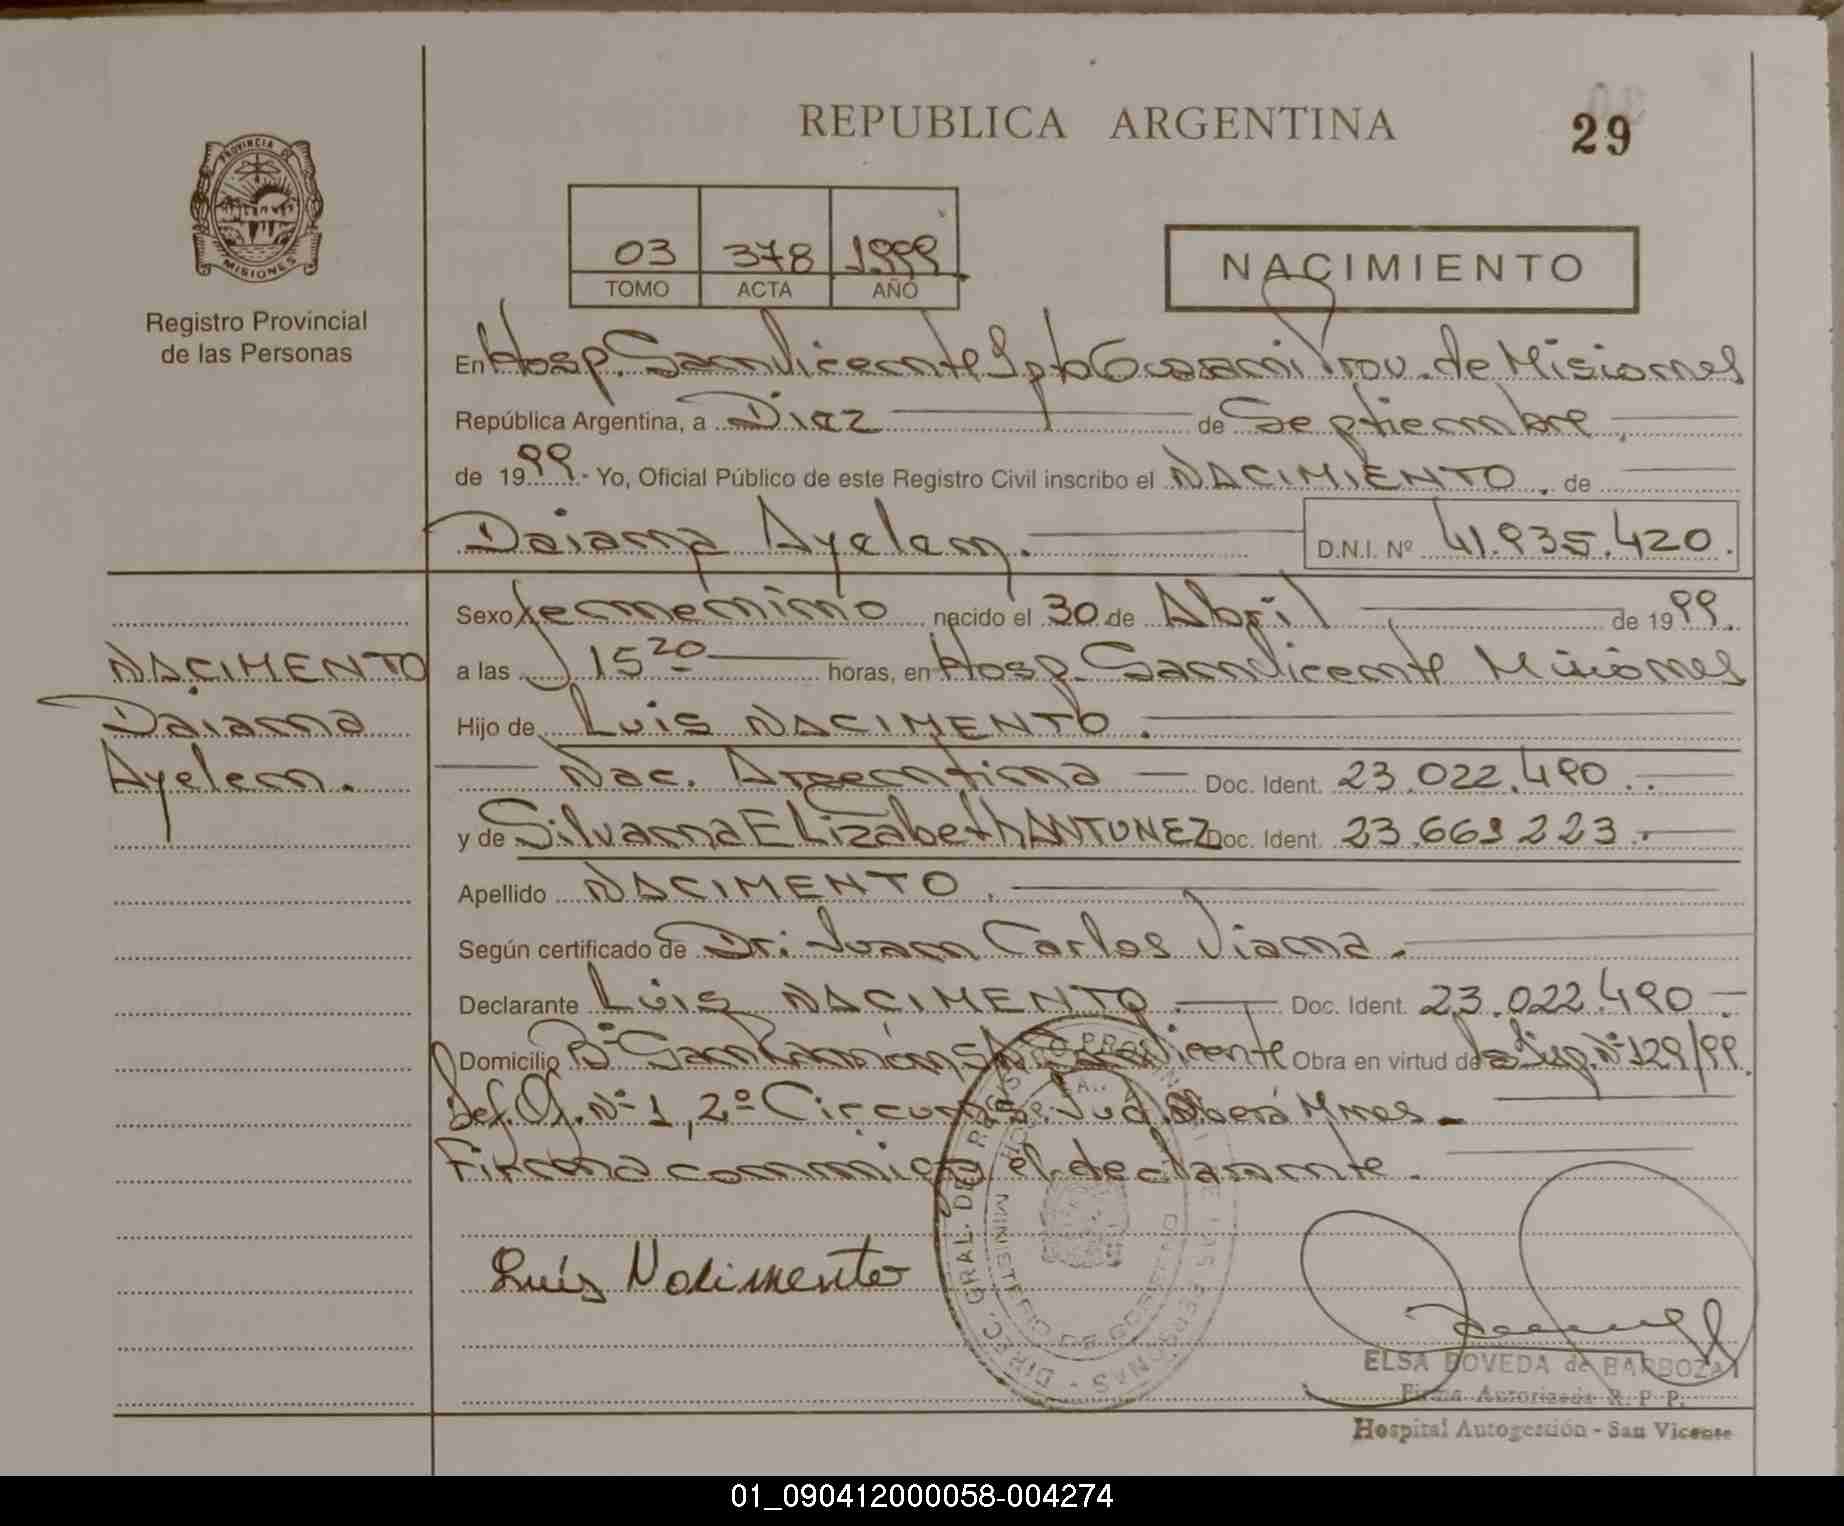 REPUBLICA ARGENTINA
29
PROVINCIA DE
MISIONES
Registro Provincial
de las Personas
03 378 1999
TOMO ACTA AÑO
NACIMIENTO
En Hosp. San Vicente Dpto Guarani Prov. de Misiones
República Argentina, a Diez de Septiembre
de 1999.- Yo, Oficial Público de este Registro Civil inscribo el NACIMIENTO. de
Daiana Ayelen. D.N.I. Nº 41.935.420.
Sexo femenino nacido el 30 de Abril de 1999.
NACIMENTO
Daiana
Ayelen.
a las 15 20 horas, en Hosp. San Vicente Misiones
Hijo de Luis NACIMENTO.
Nac. Argentina Doc. Ident. 23.022.490.
y de Silvana Elizabeth ANTUNEZ Doc. Ident. 23.669.223.
Apellido NACIMENTO.
Según certificado de Dr: Juan Carlos Viana.
Declarante Luis NACIMENTO. Doc. Ident. 23.022.490
Domicilio Bº San Ramón San Vicente Obra en virtud de Disp. Nº 129/99.
Def. Of. Nº 1, 2º Circunsc. Jud. Oberá Mnes.
Firma conmigo el declarante.
Luis Nacimento
DIREC. GRAL. DEL REGISTRO PROVINCIAL DE LAS PERSONAS
MINISTERIO DE GOBIERNO
ELSA BOVEDA de BARBOZA
Firma Autorizada R. P. P.
Hospital Autogestión - San Vicente
01_090412000058-004274